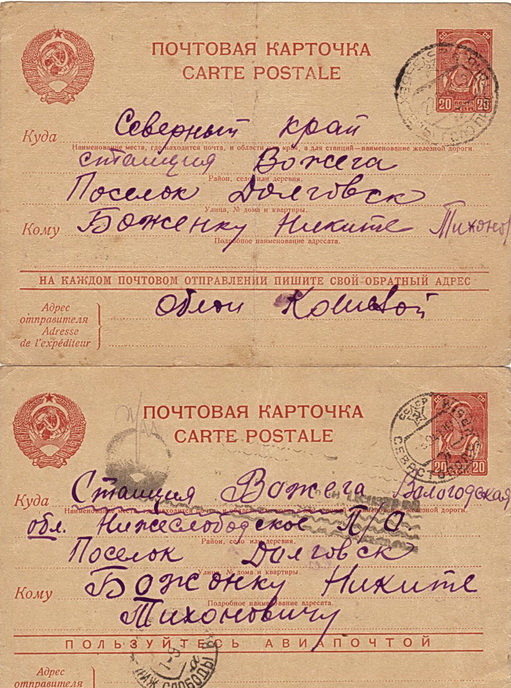 ПОЧТОВАЯ КАРТОЧКА
CARTE POSTALE
20 20
Куда Северный край
Наименование места, где находится почта, и области или края, а для станций—наименование железной дороги.
станция Вожега
Район, село или деревня.
Поселок Долговск
Улица, № дома и квартиры.
Кому Боженку Никите Тихонов
Подробное наименование адресата.
НА КАЖДОМ ПОЧТОВОМ ОТПРАВЛЕНИИ ПИШИТЕ СВОЙ ОБРАТНЫЙ АДРЕС
Адрес
отправителя
Adresse
de l'expéditeur
ПОЧТОВАЯ КАРТОЧКА
CARTE POSTALE
20 20
СЕВАС
Куда Станция Вожега Вологодская
обл. Нижеслободское П/О
Район, село или деревня.
Поселок Долговск
Улица, № дома и квартиры.
Кому Божонку Никите
Подробное наименование адресата.
Тихоновичу
ПОЛЬЗУЙТЕСЬ АВИАПОЧТОЙ
Адрес
отправителя